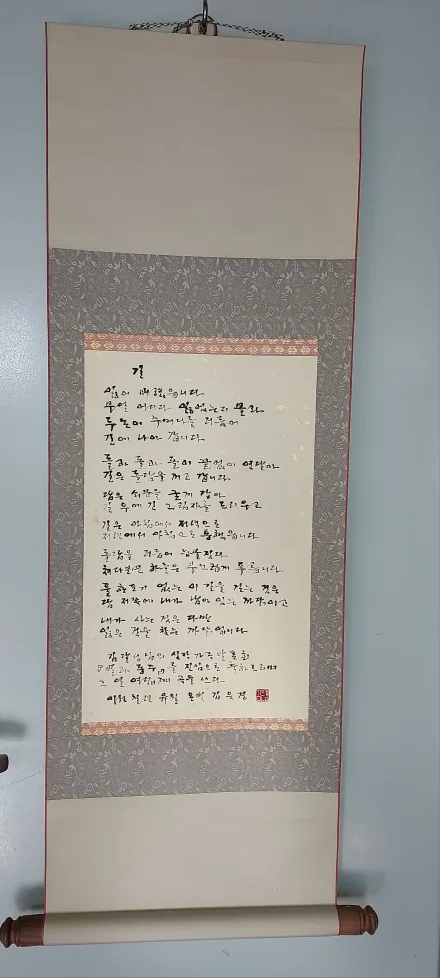 길
잃어 버렸습니다
무얼 어디다 잃었는지 몰라
두 손이 주머니를 더듬어
길에 나아 갑니다
돌과 돌과 돌이 끝없이 연달아
길은 돌담을 끼고 갑니다
담은 쇠문을 굳게 닫아
길 우에 긴 그림자를 드리우고
길은 아침에서 저녁으로
저녁에서 아침으로 통했습니다
돌담을 더듬어 눈물짓다
쳐다보면 하늘은 부끄럽게 푸릅니다
풀 한포기 없는 이 길을 걷는 것은
담 저쪽에 내가 남아 있는 까닭이고
내가 사는 것은 다만
잃은 것을 찾는 까닭입니다
님의 가족
를 진심으로 축하드리며
쓰다
유월 김은경